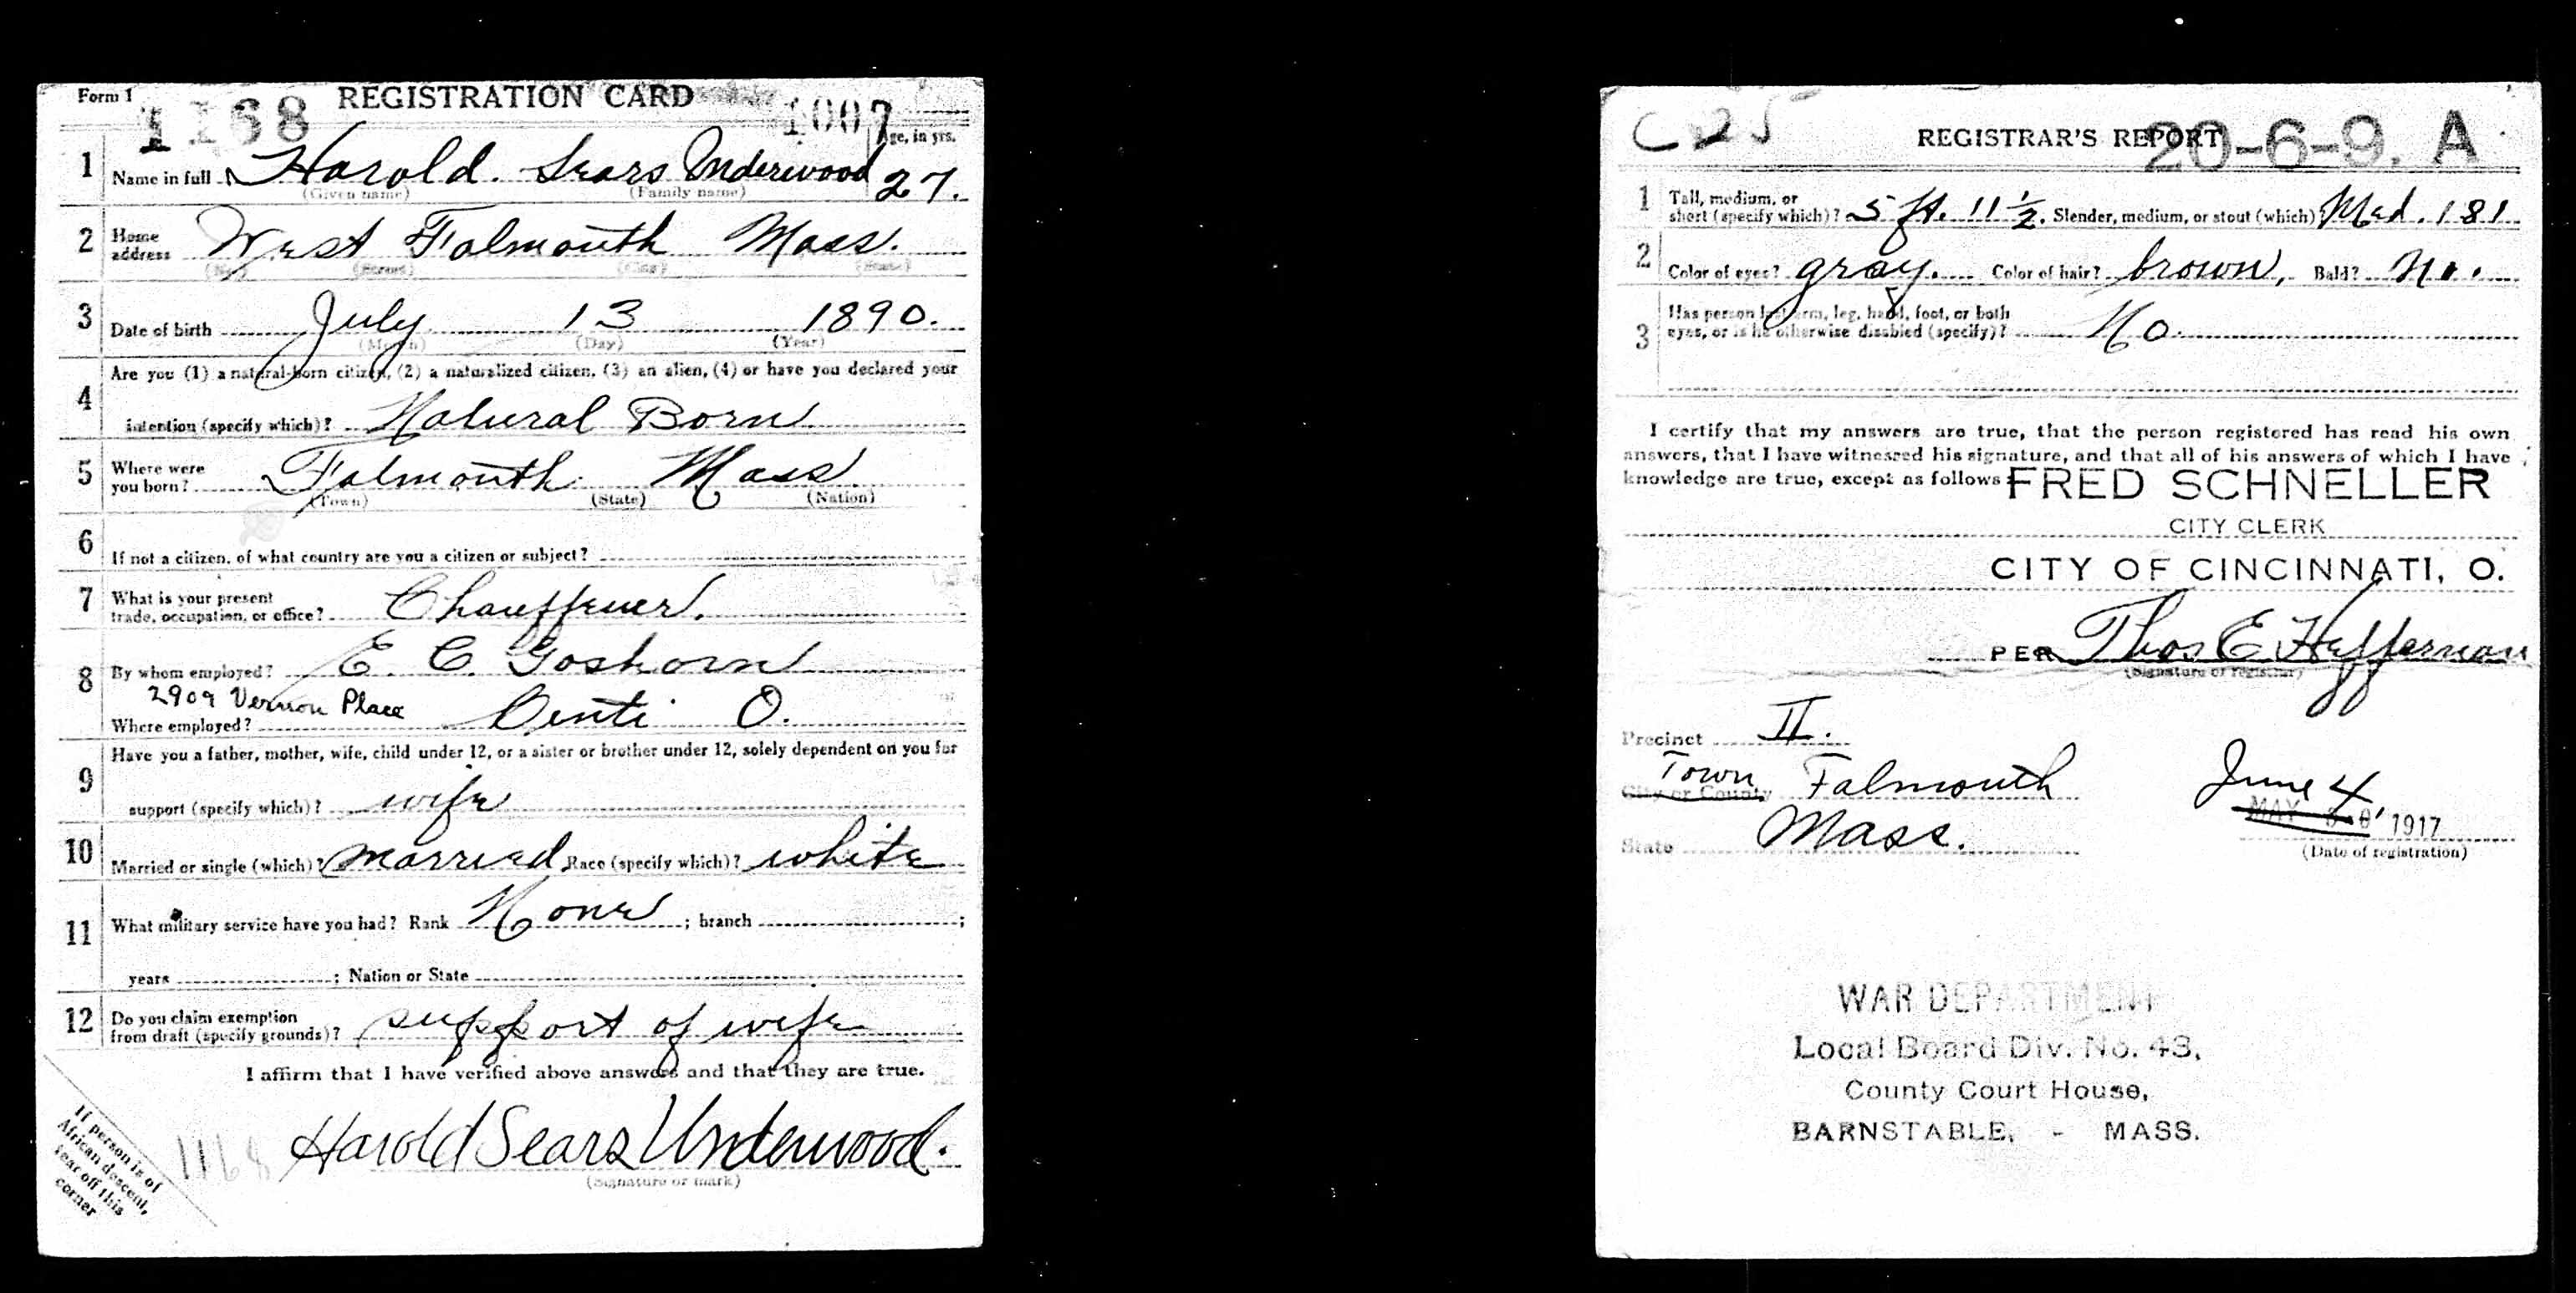 Form 1 REGISTRATION CARD
1168 1007
Age, in yrs.
1 Name in full Harold. Sears Underwood 27.
(Given name) (Family name)
2 Home address West Falmouth Mass.
(No.) (Street) (City) (State)
3 Date of birth July 13 1890.
(Month) (Day) (Year)
4 Are you (1) a natural-born citizen, (2) a naturalized citizen, (3) an alien, (4) or have you declared your
intention (specify which)? Natural Born
5 Where were you born? Falmouth Mass
(Town) (State) (Nation)
6 If not a citizen, of what country are you a citizen or subject?
7 What is your present
trade, occupation, or office? Chauffeuer.
8 By whom employed? E. C. Goshorn
2909 Vernon Place
Where employed? Centi O.
9 Have you a father, mother, wife, child under 12, or a sister or brother under 12, solely dependent on you for
support (specify which)? wife
10 Married or single (which)? married Race (specify which)? white
11 What military service have you had? Rank None ; branch ;
years ; Nation or State
12 Do you claim exemption
from draft (specify grounds)? support of wife
I affirm that I have verified above answers and that they are true.
1168 Harold Sears Underwood.
(Signature or mark)
If person is of
African descent,
tear off this
corner
REGISTRAR'S REPORT 20-6-9. A
1 Tall, medium, or
short (specify which)? 5 ft. 11 1/2. Slender, medium, or stout (which)? Med. 181
2 Color of eyes? gray. Color of hair? brown, Bald? No.
3 Has person lost arm, leg, hand, foot, or both
eyes, or is he otherwise disabled (specify)? No.
I certify that my answers are true, that the person registered has read his own
answers, that I have witnessed his signature, and that all of his answers of which I have
knowledge are true, except as follows: FRED SCHNELLER
CITY CLERK
CITY OF CINCINNATI, O.
PER Thos E Heffernan
(Signature of registrar)
Precinct II.
Town
City or County Falmouth
State Mass.
June 4,
MAY 1917
(Date of registration)
WAR DEPARTMENT
Local Board Div. No. 43,
County Court House,
BARNSTABLE, - MASS.